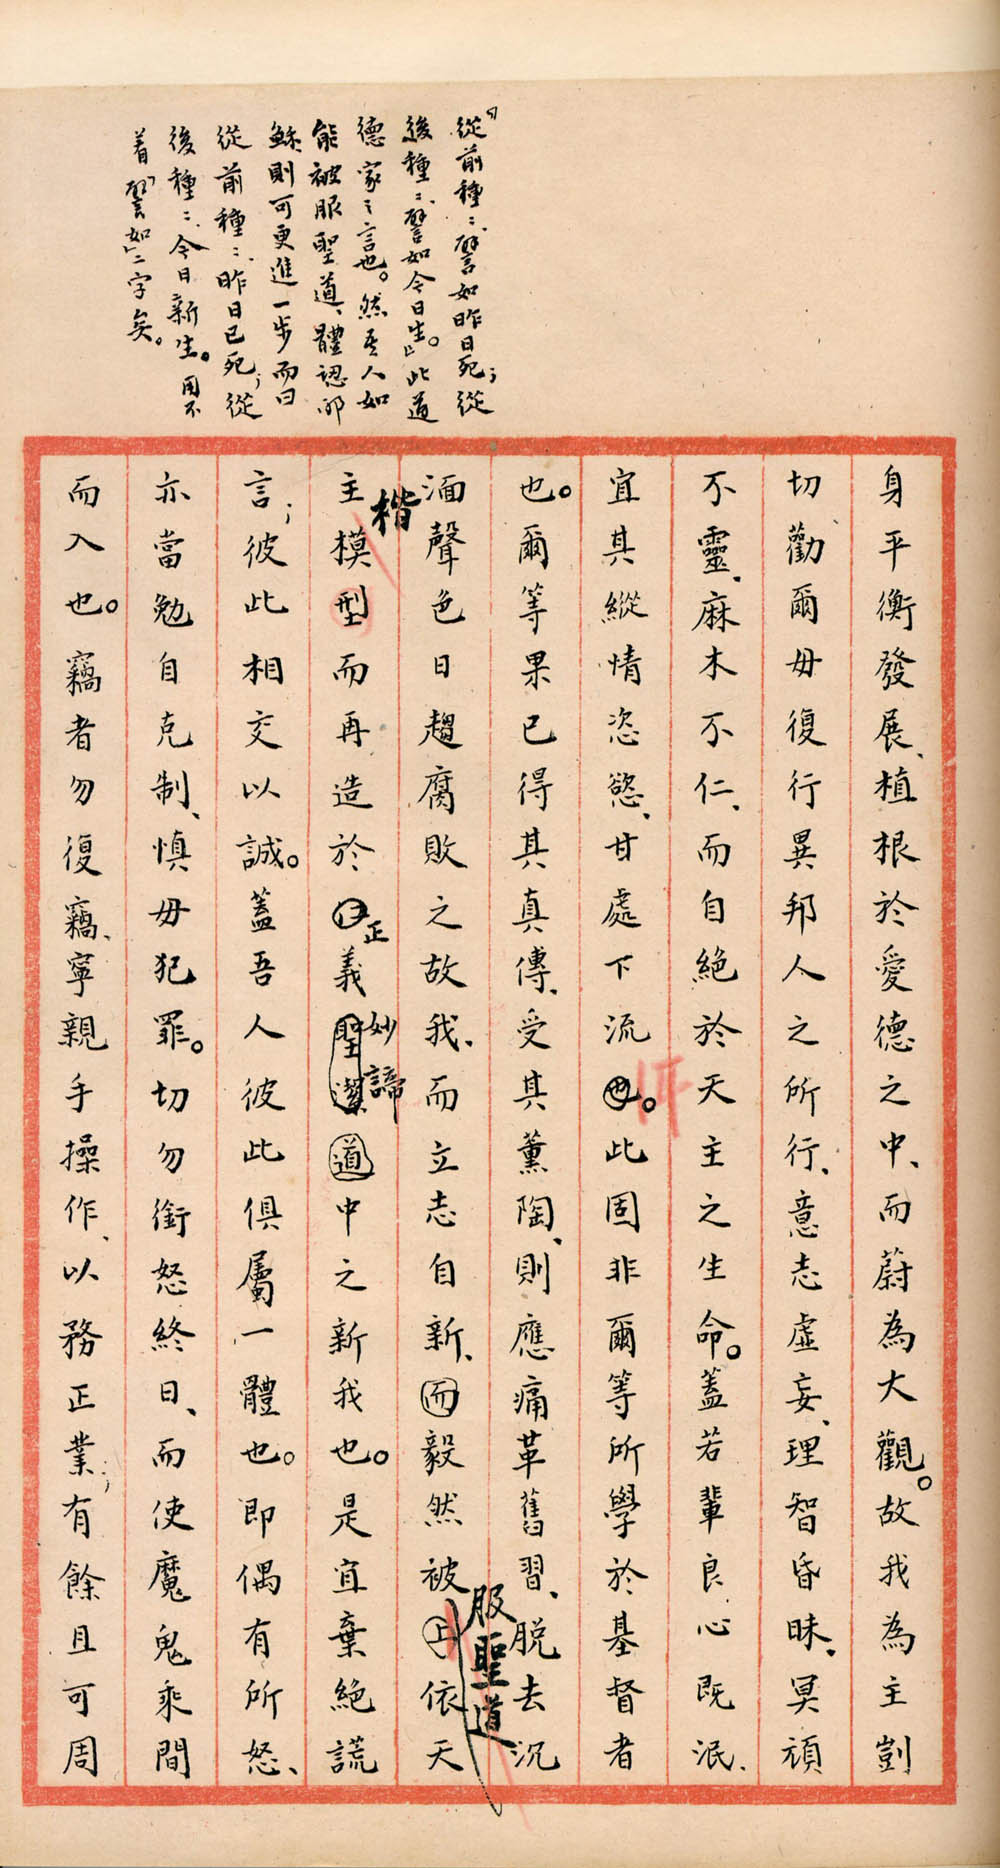 「從前種種、譬如昨日死；從
後種種、譬如今日生。」此道
德家之言也。然吾人如
能被服聖道、體認耶
穌、則可更進一步而曰
從前種種、昨日已死；從
後種種、今日新生。用不
着「譬如」二字矣。
身平衡發展、植根於愛德之中、而蔚為大觀。故我為主剴
切勸爾毋復行異邦人之所行、意志虛妄、理智昏昧、冥頑
不靈、麻木不仁、而自絕於天主之生命。蓋若輩良心既泯、
宜其縱情恣慾、甘處下流也。此固非爾等所學於基督者
也。爾等果已得其真傳、受其薰陶、則應痛革舊習、脫去沉
湎聲色日趨腐敗之故我、而立志自新、而毅然被上依天
服聖道
主模型而再造於正義聖潔道中之新我也。是宜棄絕謊
楷
妙諦
言；彼此相交以誠。蓋吾人彼此俱屬一體也。即偶有所怒、
亦當勉自克制、慎毋犯罪。切勿銜怒終日、而使魔鬼乘間
而入也。竊者勿復竊、寧親手操作、以務正業；有餘且可周